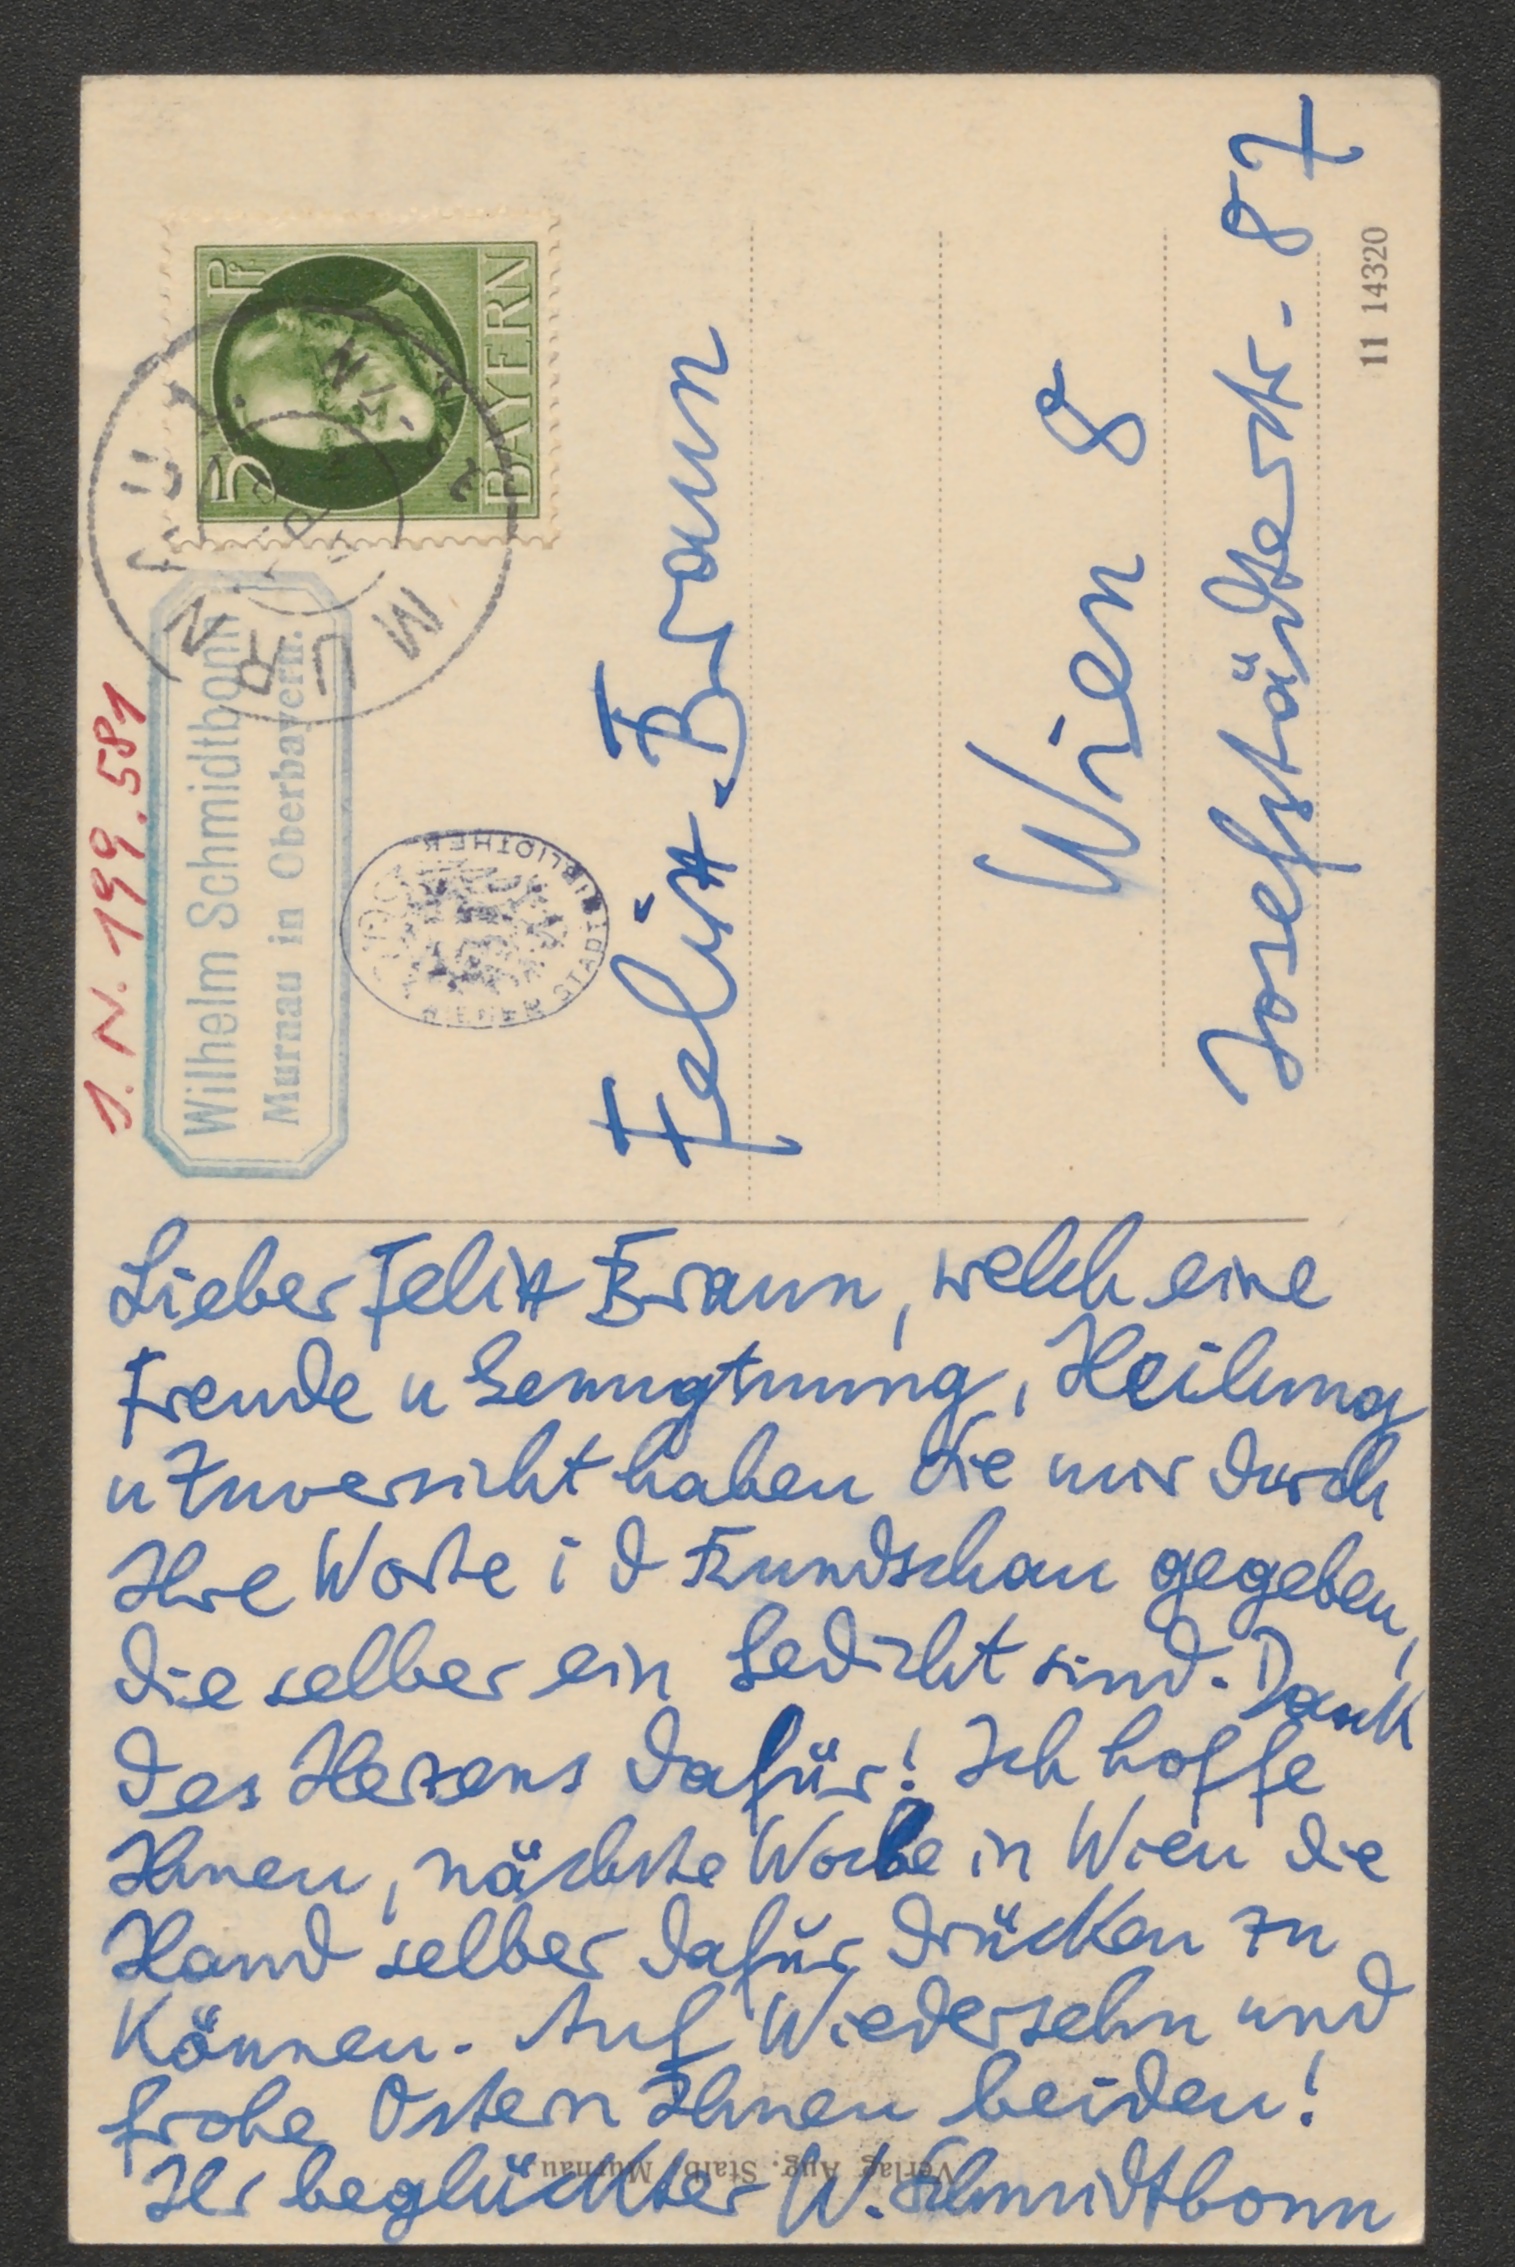 5 Pf
BAYERN
MURNAU
J. N. 199.581
Wilhelm Schmidtbonn
Murnau in Oberbayern.
WIENER STADTBIBLIOTHEK
Felix Braun
Wien 8
Josefstädterstr. 87
11 14320
Lieber Felix Braun, welch eine
Freude u Genugtuung, Heilung
u Zuversicht haben Sie mir durch
Ihre Worte i d Rundschau gegeben,
die selber ein Gedicht sind. Dank
des Herzens dafür! Ich hoffe
Ihnen, nächste Woche in Wien die
Hand selber dafür drücken zu
können. Auf Wiedersehn und
frohe Ostern Ihnen beiden!
Ihr beglückter W. Schmidtbonn
Verlag Aug. Stalb, Murnau